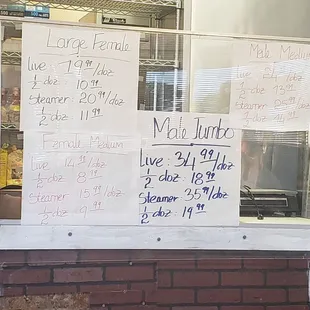 Large Female
Live: 19.99/doz
1/2 doz 10.99
Steamer: 20.99/doz
1/2 doz: 11.99
Female Medium
Live 14.99/doz
1/2 doz 8.99
Steamer 15.99/doz
1/2 doz 9.99
Male Jumbo
Live: 34.99/doz
1/2 doz: 18.99
Steamer 35.99/doz
1/2 doz 19.99
Male Medium
Live
1/2 doz
Steamer
1/2 doz